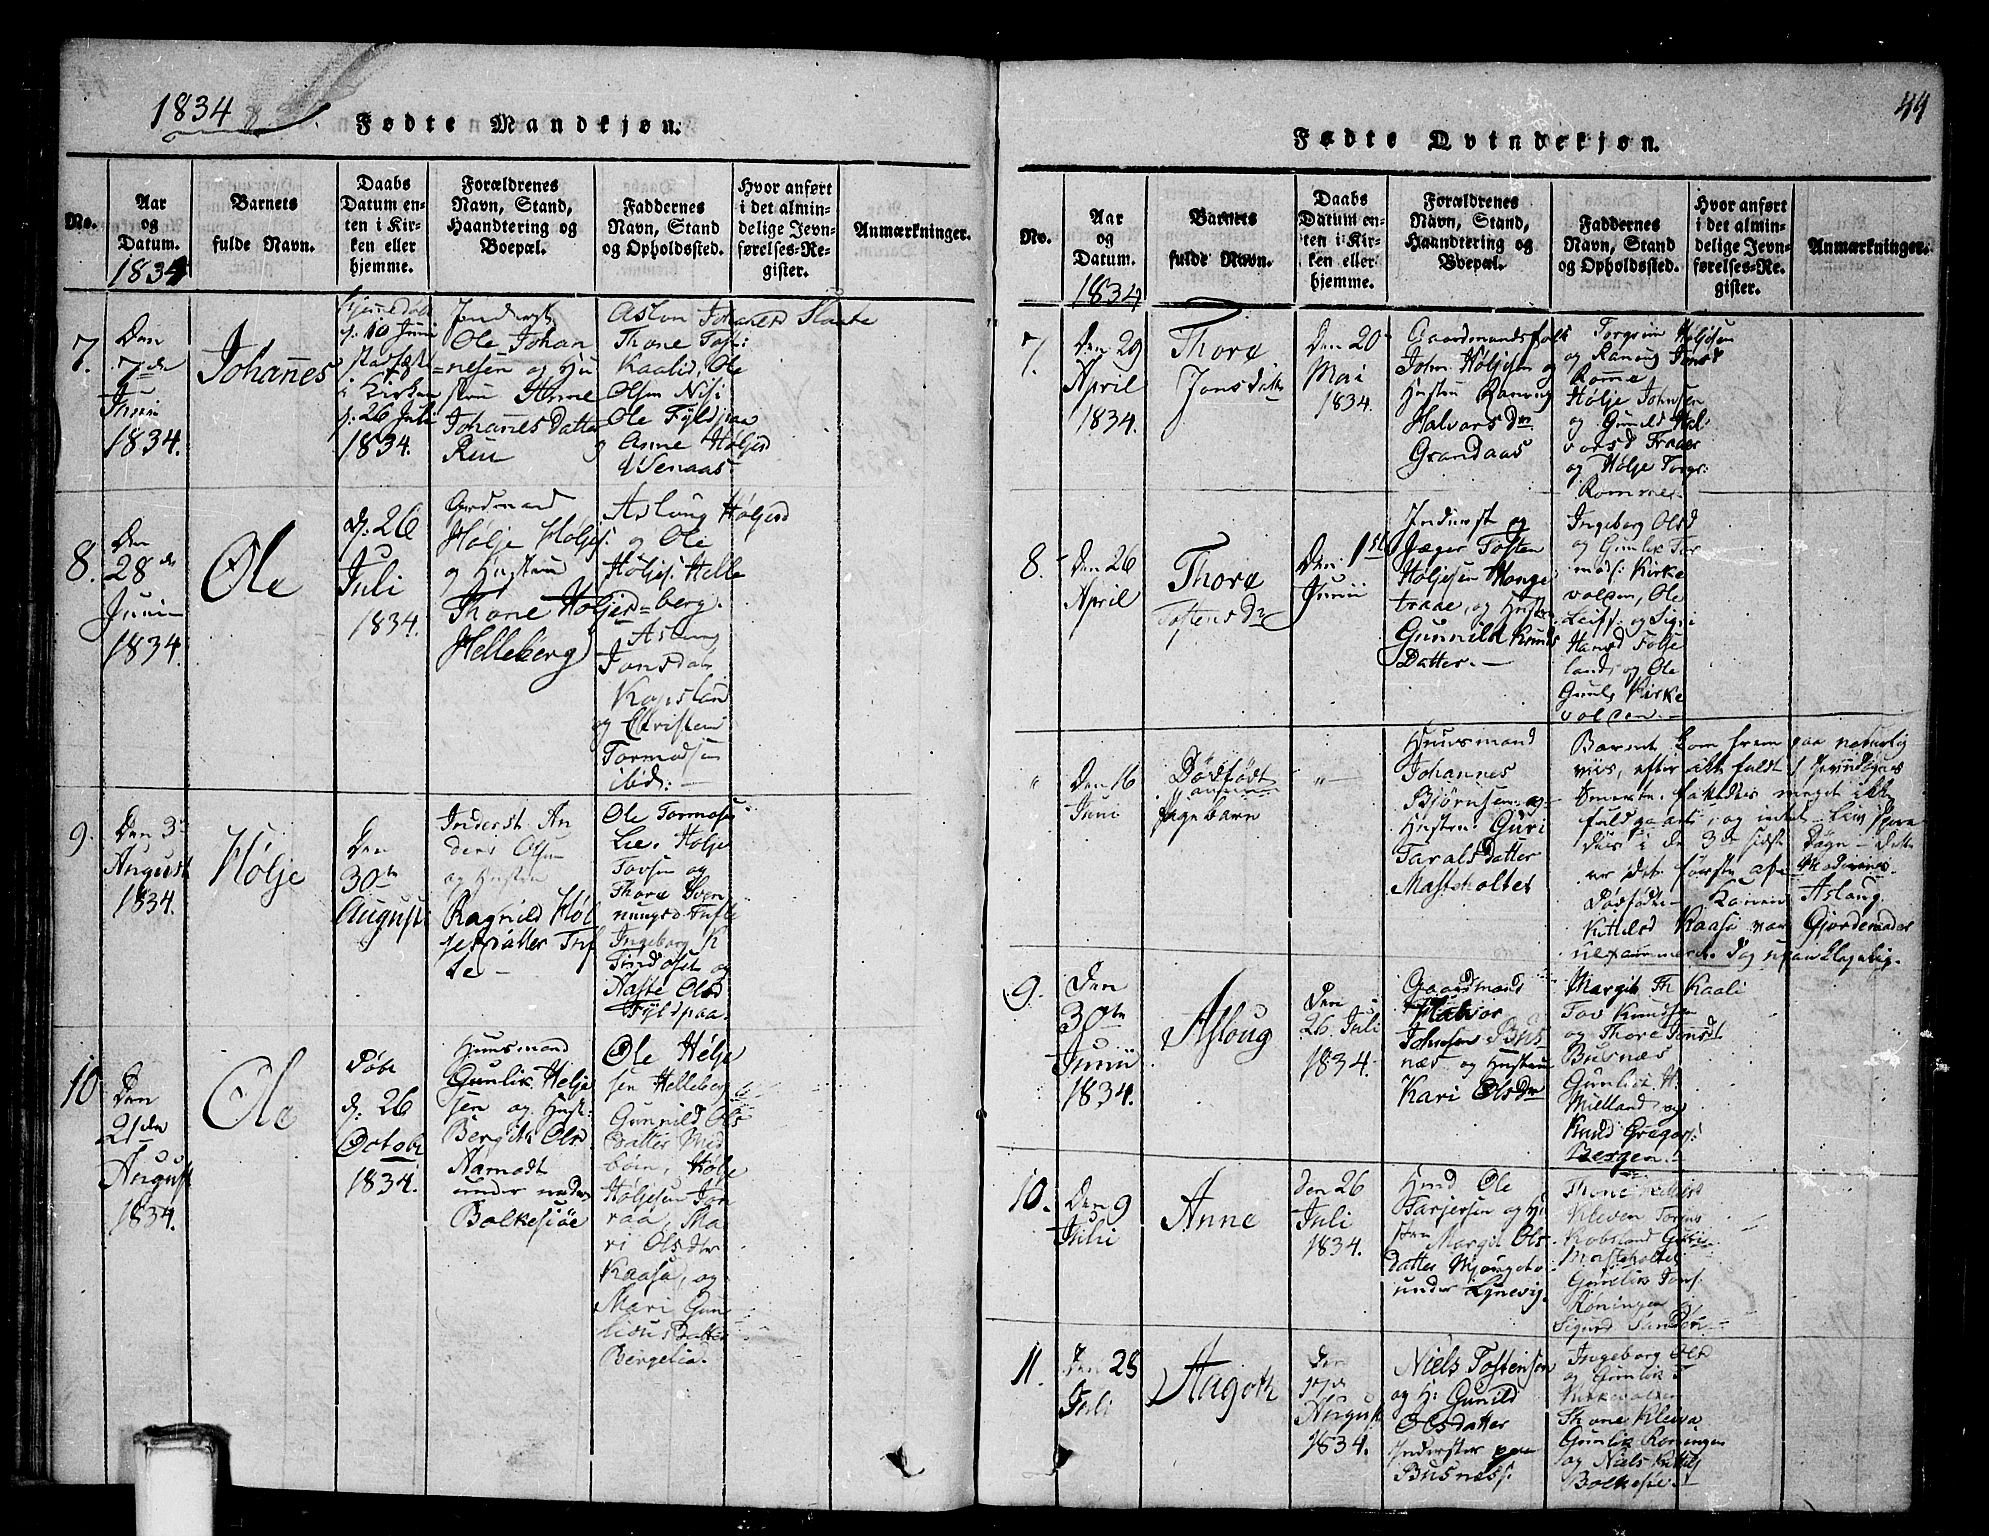 1834
Fødte Mandkjøn.
No.
Aar
og
Datum.
1834
Barnets
fulde Navn.
Daabs
Datum en-
ten i Kir-
ken eller
hjemme.
Forældrenes
Navn, Stand,
Haandtering og
Boepæl.
Faddernes
Navn, Stand
og Opholdssted.
Hvor anført
i det almin-
delige Jevn-
førelses-Re-
gister.
Anmærkninger.
7.
Den
7de
Juni
1834.
Johannes
Hjemmedøbt
d. 10 Juni
i Kirken
d. 26 Juli
1834.
Inderst
Ole Johan
=nesen og Hu
stru Anne
Johannes Datter
Ruu
Aslou Johannesd Slaate
Thone Tosi:
Kaalid, Ole
Olsen
Ole Fyldpaa
Anne Høljesd
Wenaas
8.
Den
28de
Junii
1834.
Ole
d. 26
Juli
1834.
Gardmand
Hølje Høljes.
og Hustru
Thone Høljesd
Helleberg
Asloug Høljesd
og Ole
Høljes. Helle
=berg.
Aslaug
Jonsdatr
og Christen
Tormodsen
ibid: —
9.
Den 3de
August
1834.
Hølje
Den
30te
August
Inderst An
ders Olsen
og Hustru
Ragnild Høl
jesdatter Tuf
te —
Ole Tormods.
Lie. Hølje
Tovsen og
Thore
Tufte
Ingeborg K
Tindoset og
Naste Olsd
Fyldpaa.
10
Den
21de
August
1834.
Ole
Døbt
d. 26
October
1834.
Huusmand
Gunlik Hølje
sen og Hust:
Bergit Olsd
under
Bolkesiøe
Ole Hølje
sen Helleberg
Gunnild Ols
Datter Mid
bøen, Hølje
Høljesen Jon
raa, Ma
ri Olsdtr
Kaasa, og
Mari Gun
Datter
Bergelid.
44
Fødte Qvindekjøn.
No.
Aar
og
Datum.
1834
Barnets
fulde Navn.
Daabs
Datum en-
ten i Kir-
ken eller
hjemme.
Forældrenes
Navn, Stand,
Haandtering og
Boepæl.
Faddernes
Navn, Stand
og Opholdssted.
Hvor anført
i det almin-
delige Jevn-
førelses-Re-
gister.
Anmærkninger.
7.
Den 29
April
1834.
Thore
Jonsdatr
Den 20
Mai
1834.
Gaardmandsfolk
John Høljesen og
Hustru Ranoug
Halvorsdtr
Grandaas
Torgrim Høljesen
og Ranoug Jonsd
Romme
Hølje Johnsen
og Gunild Hal-
vorsd Traaer
og Hølje Torgr:
Romme
8.
Den 26
April
Thore
Tostensdr
Den 1ste
Junii
Inderst og
Jæger Tosten
Høljesen Honge
traae, og Hustru
Gunnild Knuds
Datter. —
Ingeborg Olsd
og Gunlik Tor
mods: Kirke
volden, Ole
Leiff. og Sigri
Hansd Følse
land, og Ole
Gunl. Kirke
volden. —
"
Den 16
Juni
Dødfødt
Pigebarn
" —
Huusmand
Johannes
Bjørnsen og
Hustru Guri
Taralsdatter
Masteholtet
Barnet kom frem paa naturlig
viis, efter ikke fuldt
Smerte. Fattedes meget ikke
fuldgaaet, og intet Liv spore
des i de 3de sidste Døgn — Dette
er det første af Moderens
Dødfødte — Konen Aslaug
Kittelsd Kaasa var Gjordemoder
uexamineret. Dog upaaklagelig.
9.
Den
30te
Junii
1834.
Asloug
Den
26 Juli
1834.
Gaardmand
Halvor
Johnsen Bus
næs og Hustru
Kari Olsdtr
Margit Th Kaali
Tov Knudsen
og Thore Jonsdt
Busnæs
Gunlik H.
Midland, og
Knud Gregers:
Bergen.
10.
Den 9
Juli
Anne
den 26
Juli
1834.
Hmd Ole
Tarjersen og Hu
stru Margit Ols
datter
under Lynevig.
Thone
Kleven
Kobsland Guri
Masteholtet
Gunlik Jons.
Røningen
Sigurd
11.
Den 25
Juli
Aagoth
den
17de
August
1834.
Niels Tostensen
og H: Gunild
Olsdatter
Inderster paa
Busnæs.
Ingeborg Olsd
og Gunlik T
Kirkevolden
Thone Kleiva
Gunlik Roningen
og Niels
Bolkesiø. —